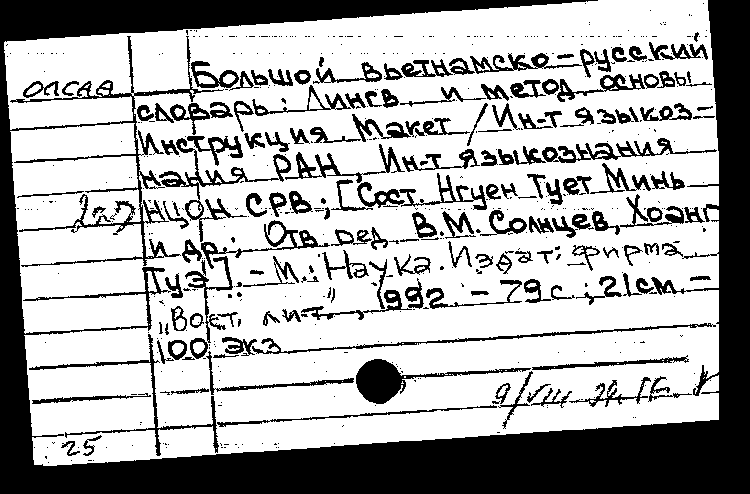 Большой вьетнамско-русский
ОЛСАА
словарь: Лингв. и метод. основы
Инструкция. Макет / Ин-т языкоз-
нания РАН, Ин-т языкознания
НЦОН СРВ; [Сост. Нгуен Тует Минь
и др.; Отв. ред. В.М. Солнцев, Хоанг
Туэ]. - М.: Наука. Издат. фирма
„Вост. лит.", 1992. - 79с.; 21см. -
100 экз
9/VIII
25